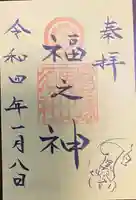 奉拝
福之神
令和四年一月八日